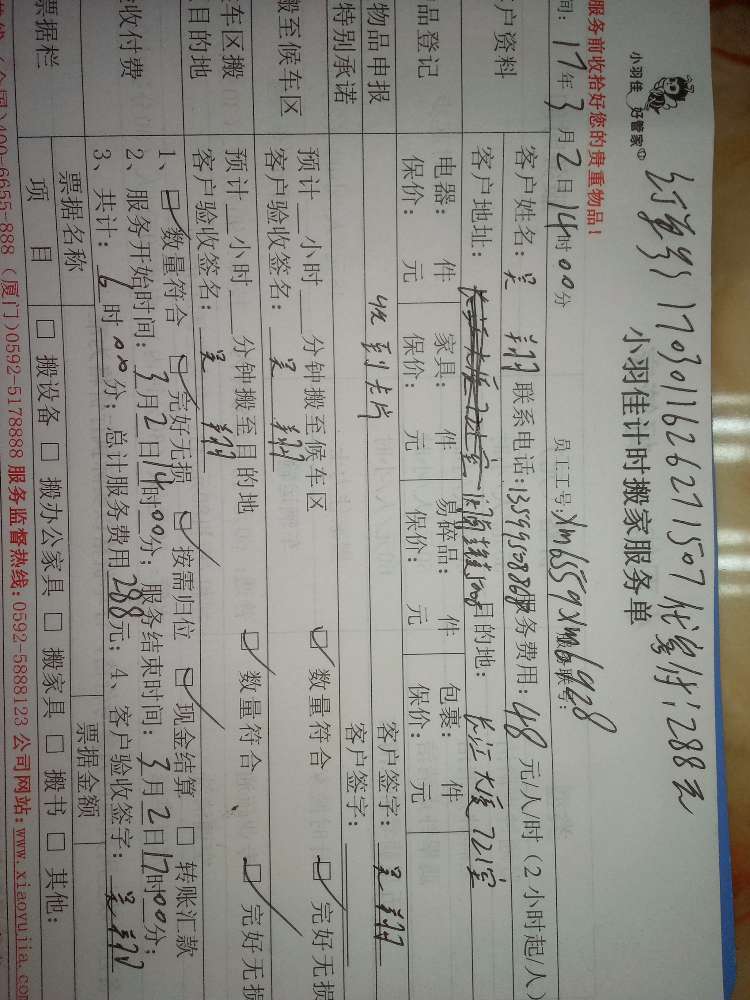 订单号: 1703011626271507 代客付: 288元
小羽佳
好管家
小羽佳计时搬家服务单
服务前收拾好您的贵重物品!
间: 17年3月2日14时00分 员工工号: xm6559xm6928 服务联号:
户资料
客户姓名: 吴 联系电话: 13599508868 服务费用: 48元/人/时 (2小时起/人)
客户地址: 目的地: 长江大厦721室
品登记
电器: 件 家具: 件 易碎品: 件 包裹: 件
保价: 元 保价: 元 保价: 元 保价: 元
物品申报 收到卡片 客户签字: 吴
特别承诺 客户签字:
搬至候车区
预计__小时__分钟搬至候车区 数量符合 完好无损
客户验收签名: 吴
车区搬目的地
预计__小时__分钟搬至目的地 数量符合 完好无损
客户验收签名: 吴
收付费
1、数量符合 完好无损 按需归位 现金结算 转账汇款
2、服务开始时间: 3月2日14时00分; 服务结束时间: 3月2日17时00分;
3、共计: 6时00分; 总计服务费用288元; 4、客户验收签字: 吴
票据栏
票据名称 票据金额
项目 搬设备 搬办公家具 搬家具 搬书 其他:
(全国)400-6655-888 (厦门)0592-5178888 服务监督热线: 0592-5888123 公司网站: www.xiaoyujia.com